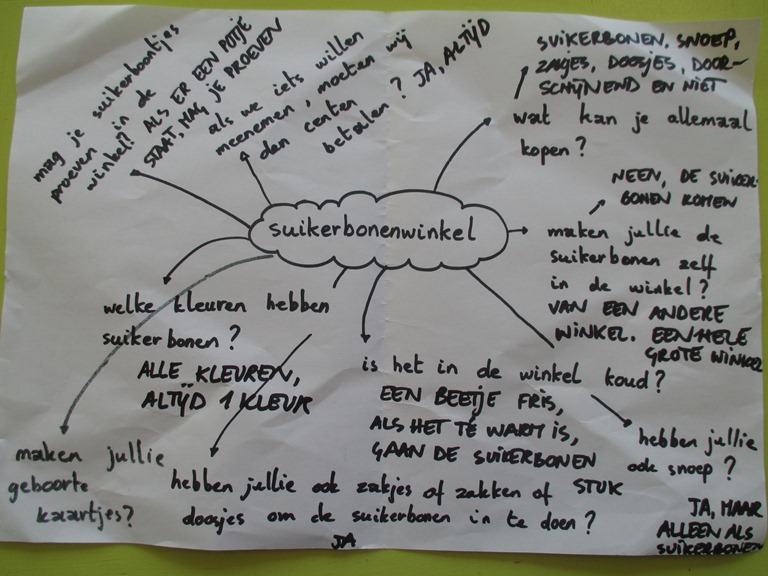 mag je suikerboontjes
proeven in de
winkel? ALS ER EEN POTJE
STAAT, MAG JE PROEVEN
als we iets willen
meenemen, moeten wij
dan centen
betalen? JA, ALTIJD
SUIKERBONEN, SNOEP,
ZAKJES, DOOSJES, DOOR-
SCHIJNEND EN NIET
wat kan je allemaal
kopen?
NEEN, DE SUIKER-
BONEN KOMEN
maken jullie de
suikerbonen zelf
in de winkel?
VAN EEN ANDERE
WINKEL. EEN HELE
GROTE WINKEL
suikerbonenwinkel
welke kleuren hebben
suikerbonen?
ALLE KLEUREN,
ALTIJD 1 KLEUR
is het in de winkel koud?
EEN BEETJE FRIS,
ALS HET TÉ WARM IS,
GAAN DE SUIKERBONEN
STUK
hebben jullie
ook snoep?
JA, MAAR
ALLEEN ALS
SUIKERBONEN
maken jullie
geboorte
kaartjes?
hebben jullie ook zakjes of zakken of
doosjes om de suikerbonen in te doen?
JA